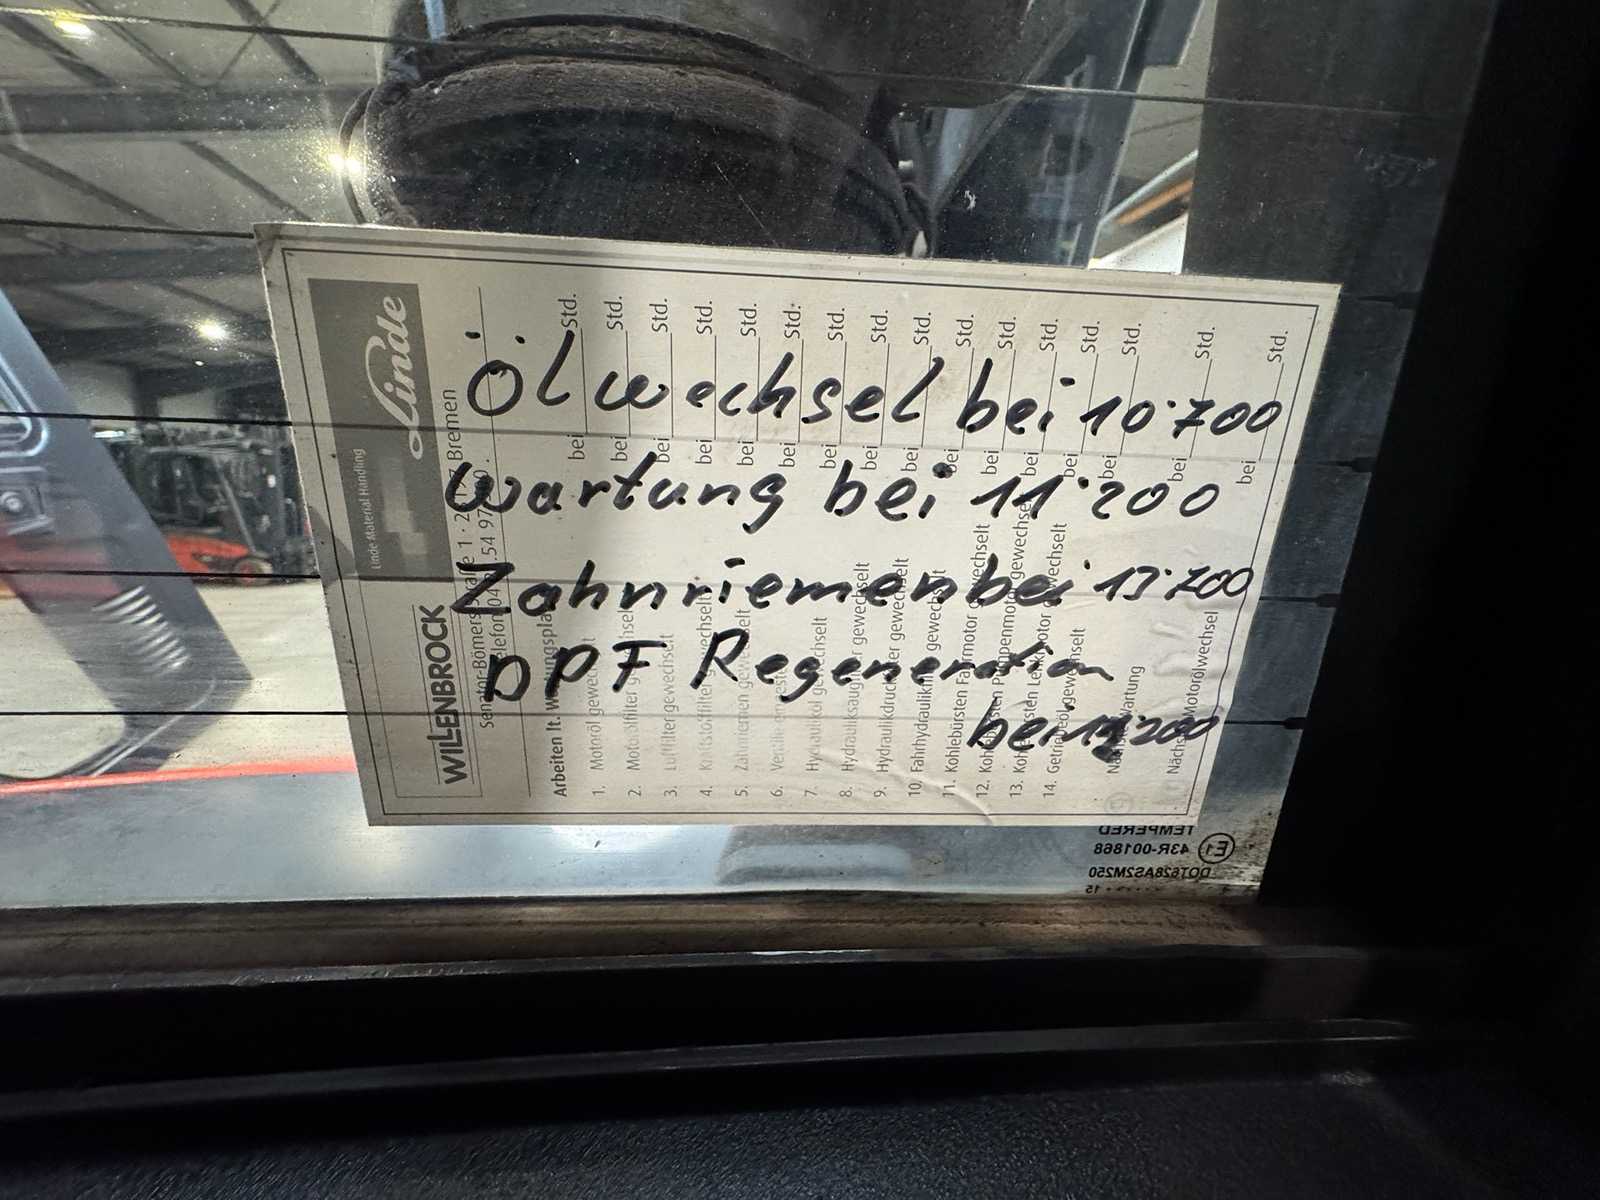 Ölwechsel bei 10.700
Wartung bei 11.200
Zahnriemen bei 13.700
DPF Regeneration
bei 11.200
Linde
Linde Material Handling
WILLENBROCK
Bremen
Arbeiten lt. Wartungsplan
1. Motoröl gewechselt bei Std.
2. Motorölfilter gewechselt bei Std.
3. Luftfilter gewechselt bei Std.
4. Kraftstofffilter gewechselt bei Std.
5. Zahnriemen gewechselt bei Std.
6. Ventile bei Std.
7. Hydrauliköl gewechselt bei Std.
8. Hydrauliksaugfilter gewechselt bei Std.
9. Hydraulikdruckfilter gewechselt bei Std.
10. Fahrhydraulikfilter gewechselt bei Std.
11. Kohlebürsten Fahrmotor gewechselt bei Std.
12. Kohlebürsten Pumpenmotor gewechselt bei Std.
13. Kohlebürsten Lenkmotor gewechselt bei Std.
14. Getriebeöl gewechselt bei Std.
Nächste Wartung bei Std.
Nächster Motorölwechsel bei Std.
TEMPERED
43R-001868 E1
DOT628AS2M250
15